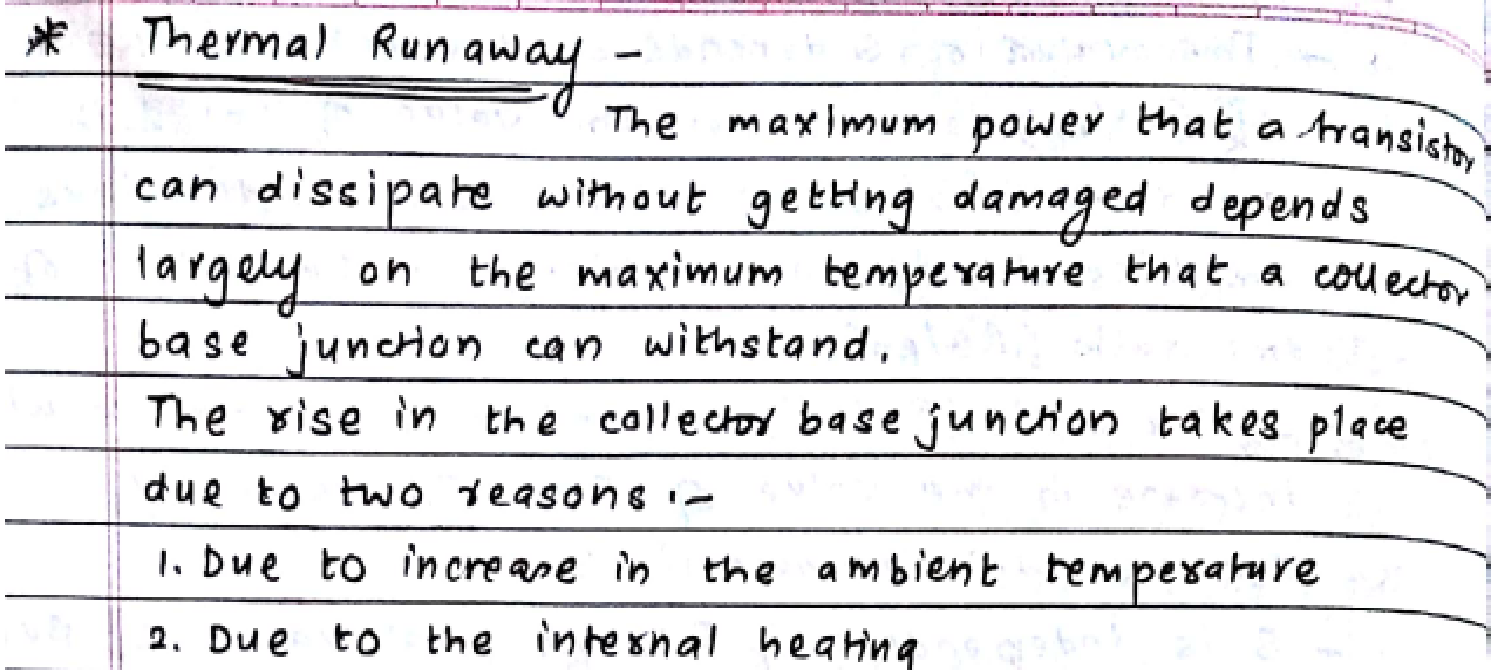 * Thermal Runaway -
The maximum power that a transistor
can dissipate without getting damaged depends
largely on the maximum temperature that a collector
base junction can withstand.
The rise in the collector base junction takes place
due to two reasons :-
1. Due to increase in the ambient temperature
2. Due to the internal heating